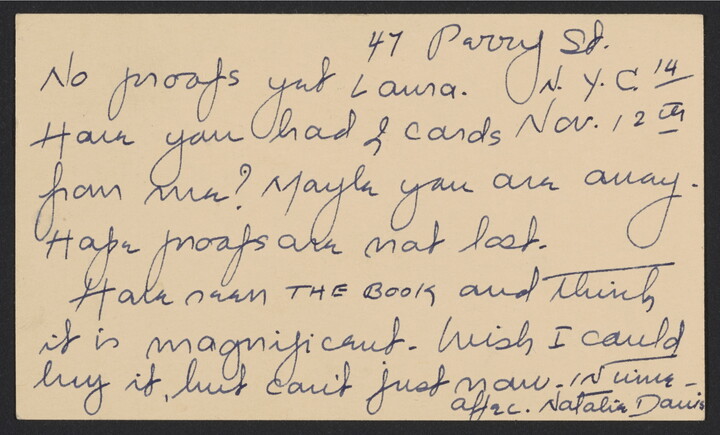 47 Perry St.
No proofs yet Laura. N.Y.C. 14
Have you had 2 cards Nov. 12th
from me? Maybe you are away.
Hope proofs are not lost.
Have seen THE BOOK and think
it is magnificent. Wish I could
buy it, but can't just now. IN time -
affec. Natalie Davis